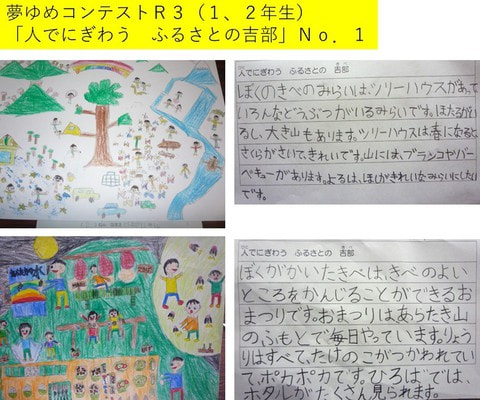 夢ゆめコンテストR3（1、2年生）
「人でにぎわう　ふるさとの吉部」No．1
人でにぎわう　ふるさとの　吉部
ぼくのきべのみらいは、ツリーハウスがあって
いろんなどうぶつがいるみらいです。ほたるがい
るし、大き山もあります。ツリーハウスは春になると、
さくらがさいて、きれいです。山には、ブランコやバー
ベキューがあります。よるは、ほしがきれいなみらいにしたい
です。
人でにぎわう　ふるさとの　吉部
ぼくがかいたきべは、きべのよい
ところをかんじることができるお
まつりです。おまつりは、あらたき山
のふもとで毎日やっています。りょう
りはすべて、たけのこがつかわれてい
て、ポカポカです。ひろばでは、
ホタルがたくさん見られます。